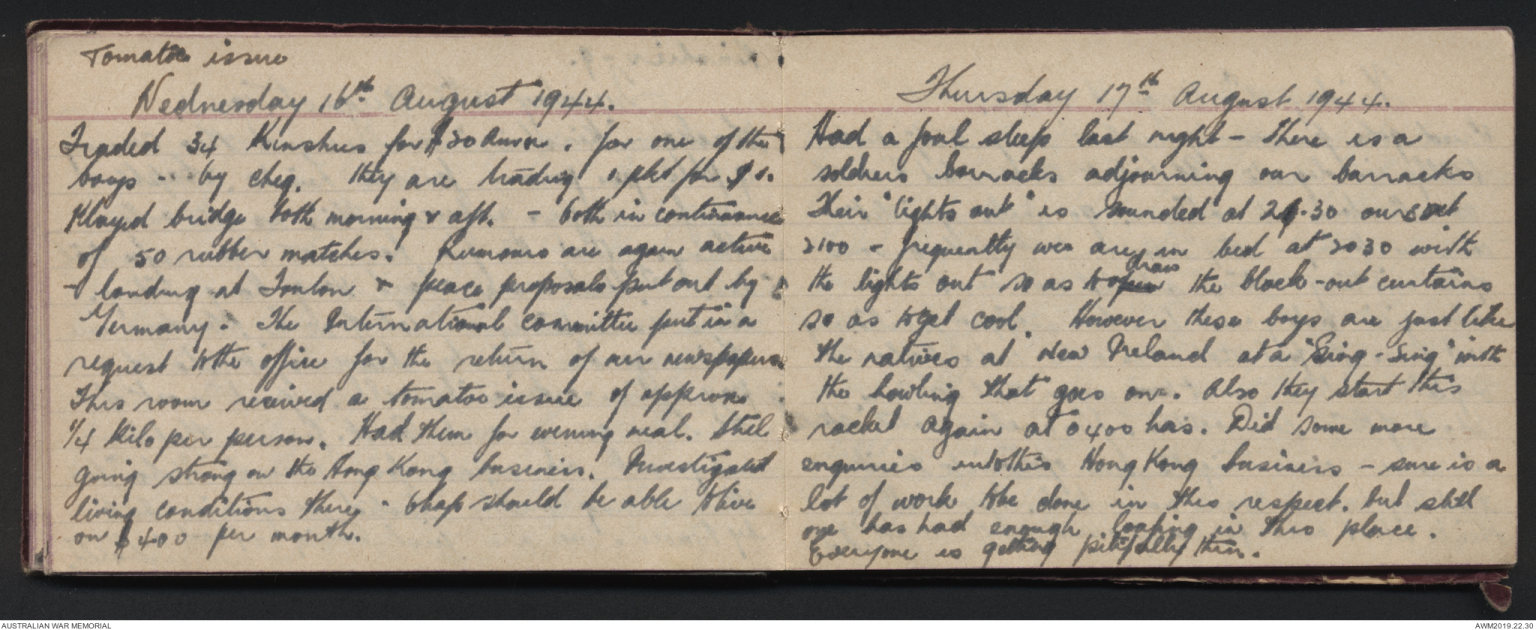 Tomatoe issue
Wednesday 16th August 1944.
Traded 34 Kinshis for $30 . for one of the
boys - by cheq. They are trading pkt for $1.
Played bridge both morning & aft. - both in continuance
of 50 rubber matches. Rumours are again active
- landing at Toulon & peace proposals put out by
Germany. The International committee put in a
request to the office for the return of our newspapers.
This room received a tomatoe issue of approx
1/4 Kilo per person. Had them for evening meal. Still
going strong on the Hong Kong business. Investigated
living conditions there - chap should be able to live
on $400 per month.
Thursday 17th August 1944.
Had a foul sleep last night - there is a
soldiers barracks adjourning our barracks
Their "lights out" is sounded at 21.30 ours at
2100 - frequently we are in bed at 2030 with
the lights out so as to draw the black-out curtains
so as to get cool. However these boys are just like
the natives at New Ireland at a "Sing-Sing" with
the howling that goes on. Also they start this
racket again at 0400 hrs. Did some more
enquiries into this Hong Kong business - sure is a
lot of work to be done in this respect. but still
one has had enough loafing in this place.
Everyone is getting pitifully thin.
AUSTRALIAN WAR MEMORIAL
AWM2019.22.30